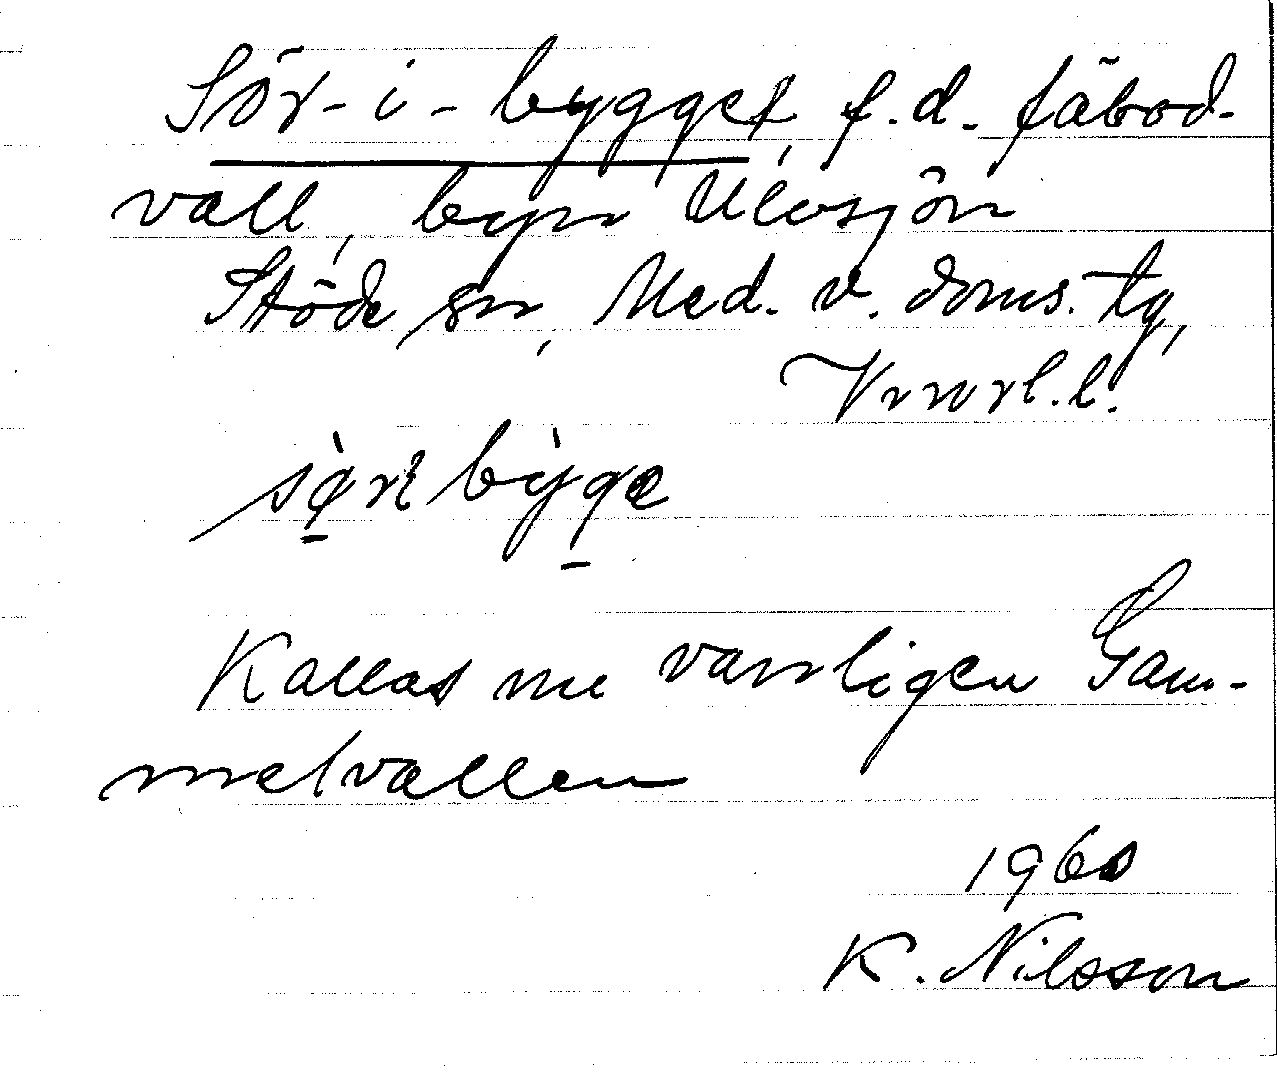 Sör-i-bygget, f.d. fäbod-
vall, byn Ulvsjön
Stöde sn, Med. v. doms. tg,
Vnorl.l.
Kallas nu vanligen Gam-
melvallen
1960
K. Nilsson